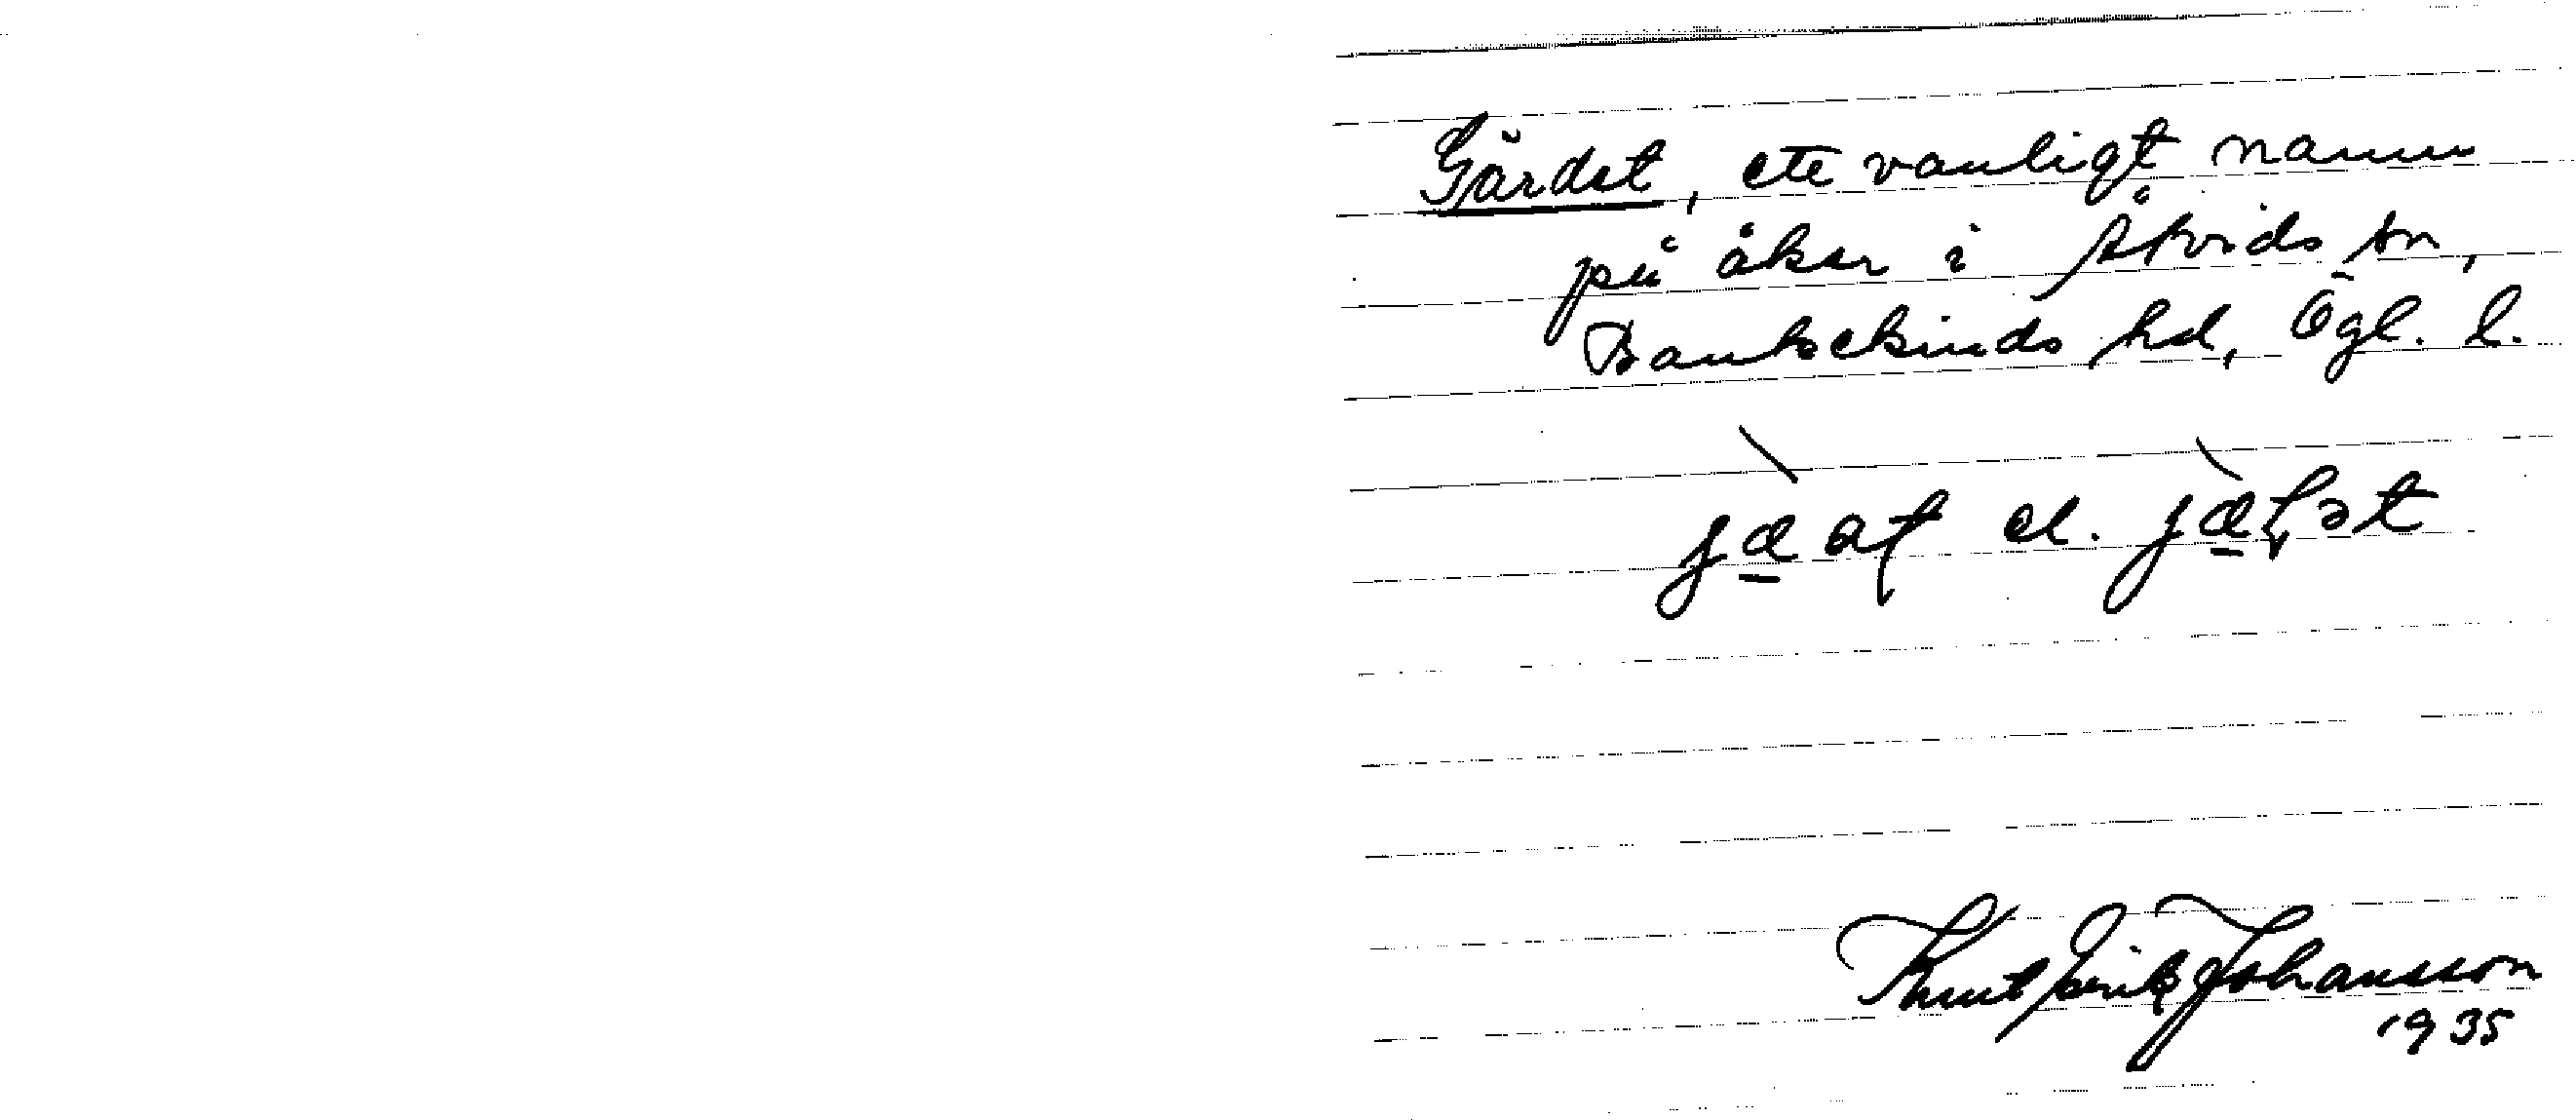 Gärdet, ett vanligt namn
på åker i Åtvids sn,
Bankekinds hd, Ögl. l.
el.
Knut Erik Johansson
1935